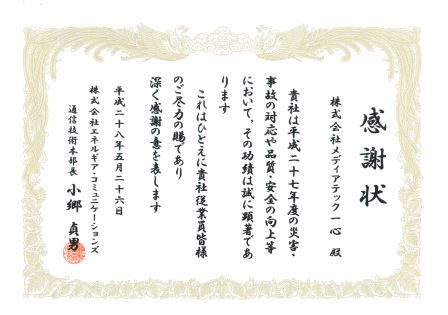 感謝状
株式会社メディアテック一心 殿
貴社は平成二十七年度の災害・
事故の対応や品質・安全の向上等
において、その功績は誠に顕著であ
ります
これはひとえに貴社従業員皆様
のご尽力の賜であり
深く感謝の意を表します
平成二十八年五月二十六日
株式会社エネルギア・コミュニケーションズ
通信技術本部長 小郷 貞男